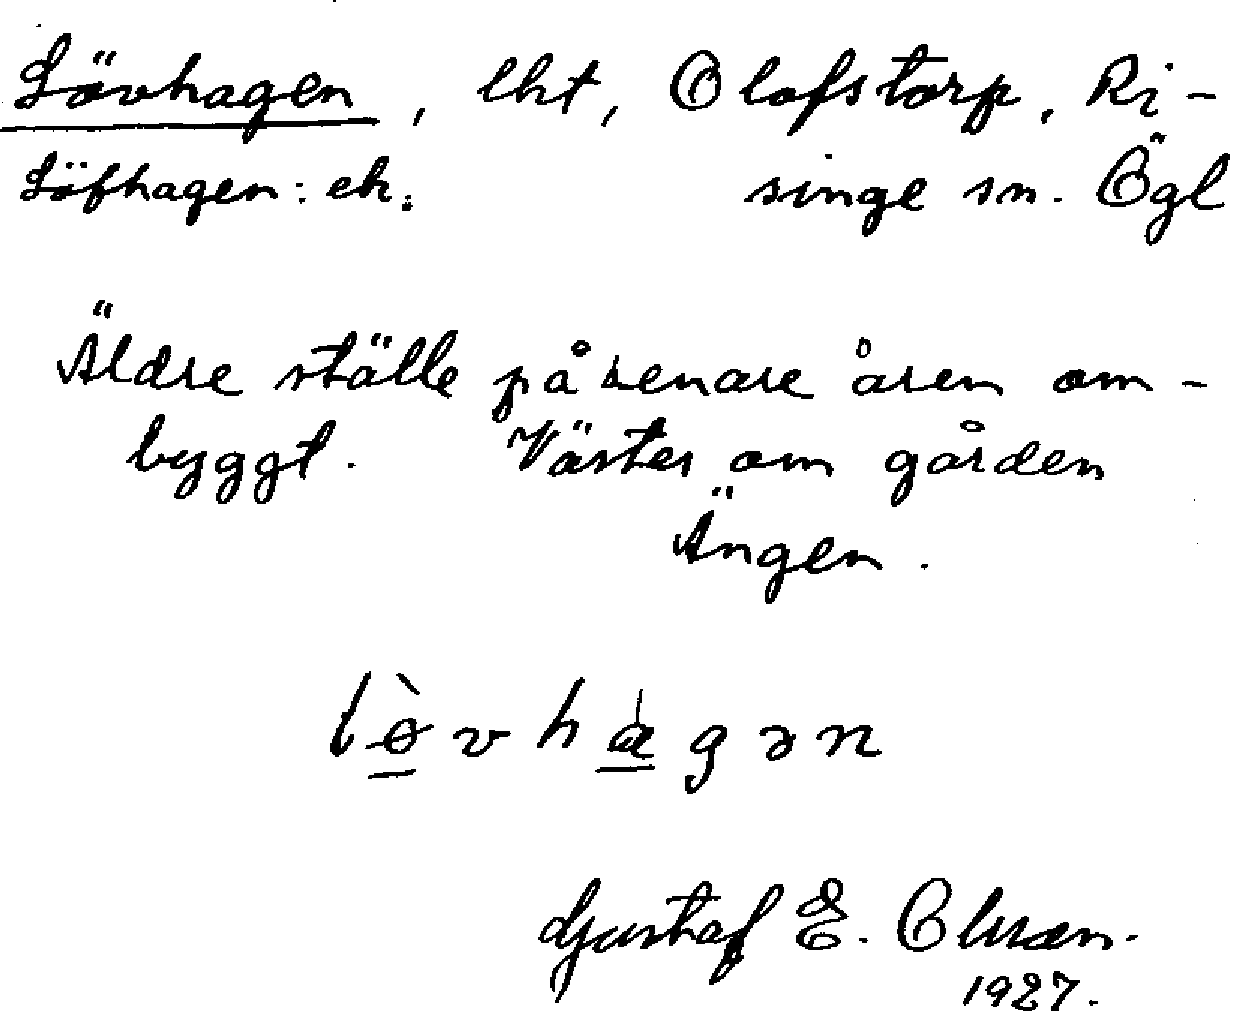 Lövhagen, lht, Olofstorp, Ri-
Löfhagen: ek. singe sn. Ögl
Äldre ställe på senare åren om-
byggt. Väster om gården
Ängen.
lø̀vhagən
Gustaf E. Olsson.
1927.